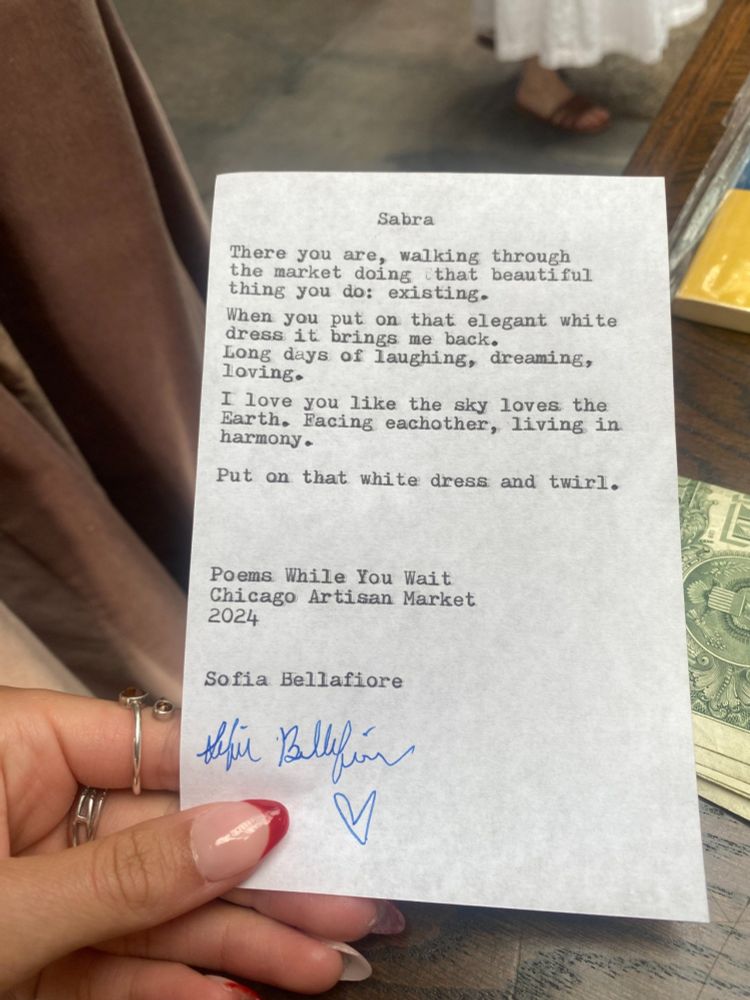 Sabra
There you are, walking through
the market doing that beautiful
thing you do: existing.
When you put on that elegant white
dress it brings me back.
Long days of laughing, dreaming,
loving.
I love you like the sky loves the
Earth. Facing eachother, living in
harmony.
Put on that white dress and twirl.
Poems While You Wait
Chicago Artisan Market
2024
Sofia Bellafiore
Sofia Bellafiore